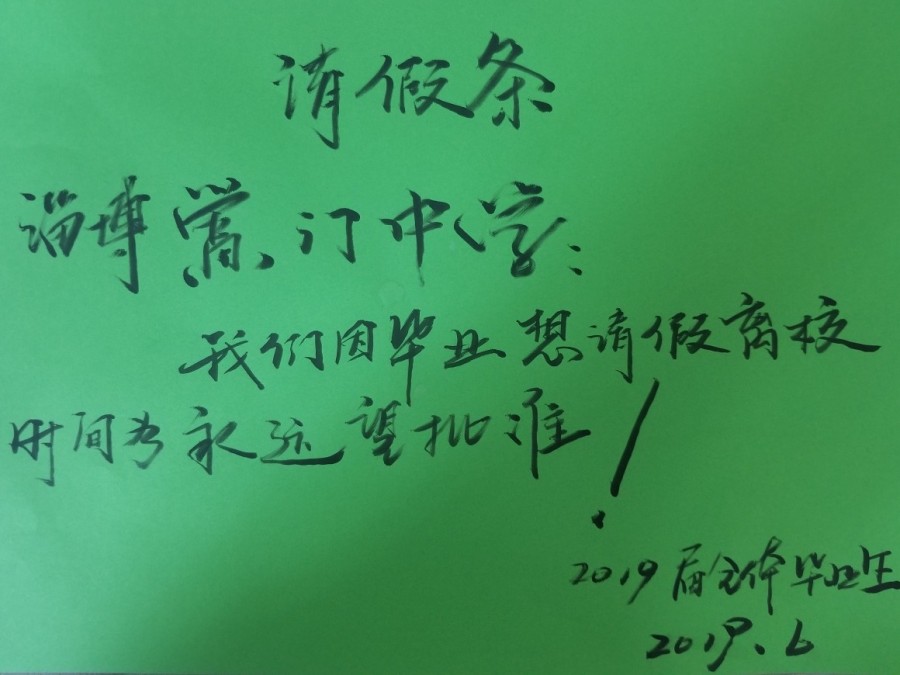 请假条
淄博萱汀中学:
我们因毕业想请假离校
时间为永远望批准!
2019届全体毕业生
2019.6